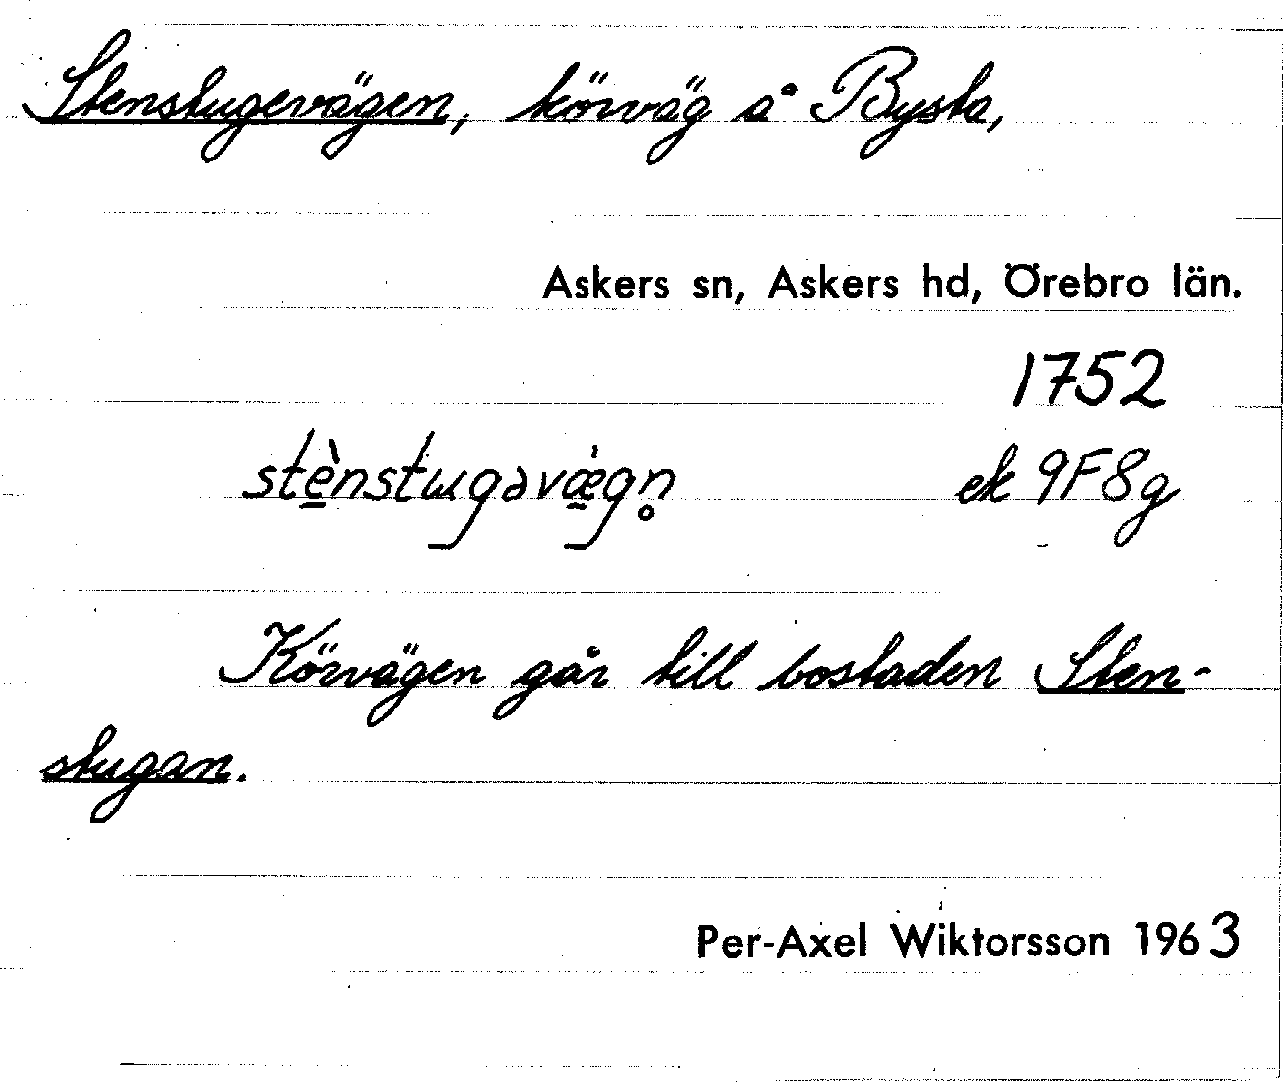 Stenstugevägen, körväg å Bysta,
Askers sn, Askers hd, Örebro län.
1752
stè̱nstɯgəvæ̱̀gn̥ ek 9F8g
Körvägen går till bostaden Sten-
stugan.
Per-Axel Wiktorsson 1963